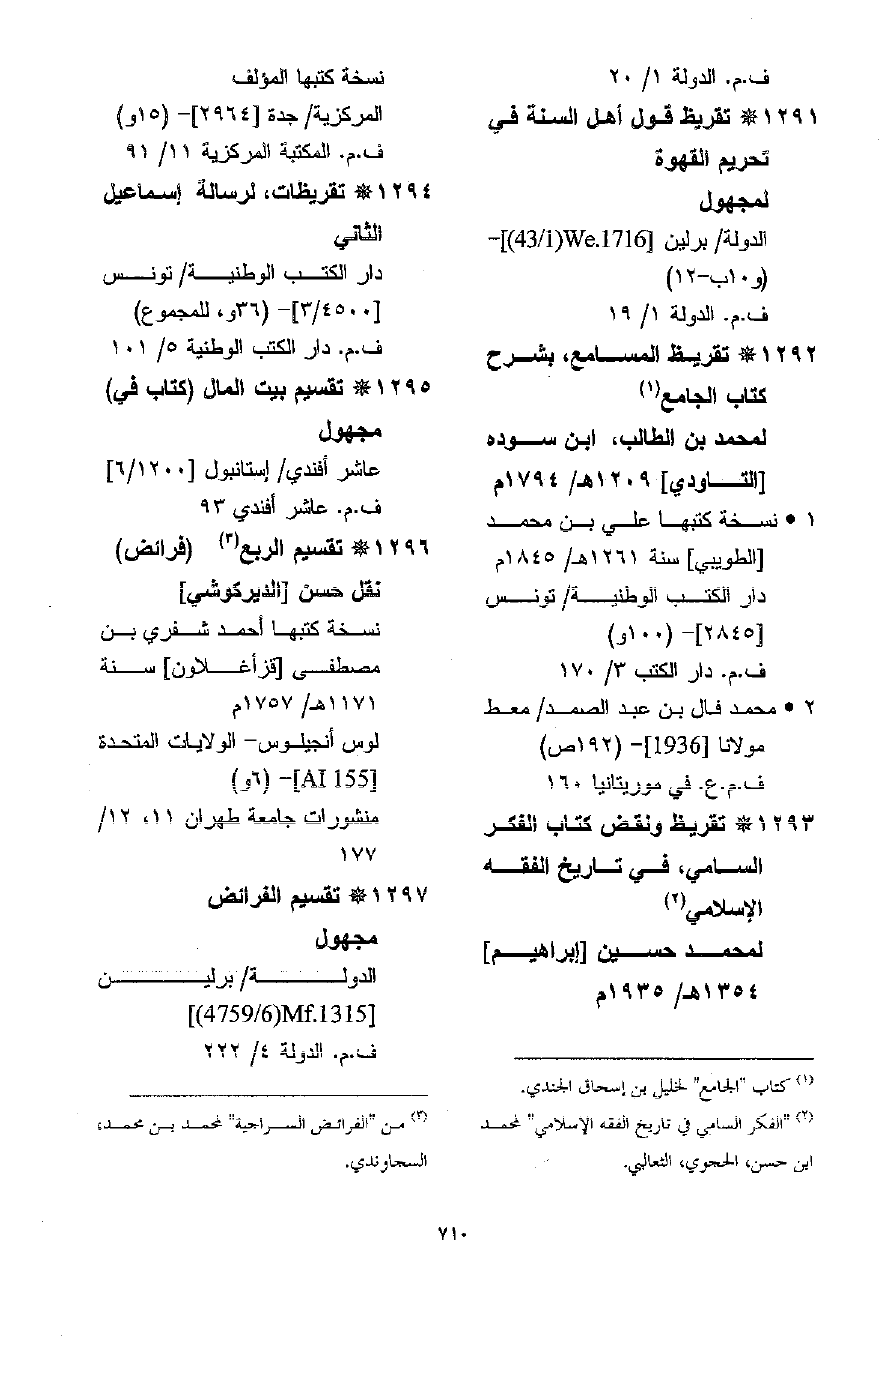 ف.م. الدولة ١/ ٢٠
١٢٩١* تقريظ قول أهل السنة في
تحريم القهوة
لمجهول
الدولة/ برلين [We.1716(43/i)]-
(و١٠ب-١٢)
ف.م. الدولة ١/ ١٩
١٢٩٢* تقريظ المسامع، بشرح
كتاب الجامع(١)
لمحمد بن الطالب، ابن سوده
[التاودي] ١٢٠٩هـ/ ١٧٩٤م
١ • نسخة كتبها علي بن محمد
[الطويبي] سنة ١٢٦١هـ/ ١٨٤٥م
دار الكتب الوطنية/ تونس
[٢٨٤٥]- (١٠٠و)
ف.م. دار الكتب ٣/ ١٧٠
٢ • محمد فال بن عبد الصمد/ معط
مولانا [1936]- (١٩٢ص)
ف.م.ع. في موريتانيا ١٦٠
١٢٩٣* تقريظ ونقض كتاب الفكر
السامي، في تاريخ الفقه
الإسلامي(٢)
لمحمد حسين [إبراهيم]
١٣٥٤هـ/ ١٩٣٥م
(١) كتاب "الجامع" لخليل بن إسحاق الجندي.
(٢) "الفكر السامي في تاريخ الفقه الإسلامي" لمحمد
ابن حسن، الحجوي، الثعالبي.
نسخة كتبها المؤلف
المركزية/ جدة [٢٩٦٤]- (١٥و)
ف.م. المكتبة المركزية ١١/ ٩١
١٢٩٤* تقريظات، لرسالة إسماعيل
الثاني
دار الكتب الوطنية/ تونس
[٣/٤٥٠٠]- (٣٦و، للمجموع)
ف.م. دار الكتب الوطنية ٥/ ١٠١
١٢٩٥* تقسيم بيت المال (كتاب في)
مجهول
عاشر أفندي/ إستانبول [٦/١٢٠٠]
ف.م. عاشر أفندي ٩٣
١٢٩٦* تقسيم الربع(٣) (فرائض)
نقل حسن [الديركوشي]
نسخة كتبها أحمد شفري بن
مصطفى [قزأغلاون] سنة
١١٧١هـ/ ١٧٥٧م
لوس أنجيلوس- الولايات المتحدة
[AI 155]- (٦و)
منشورات جامعة طهران ١١، ١٢/
١٧٧
١٢٩٧* تقسيم الفرائض
مجهول
الدولة/ برلين
[Mf.1315(4759/6)]
ف.م. الدولة ٤/ ٢٢٢
(٣) من "الفرائض السراجية" لمحمد بن محمد،
السجاوندي.
٧١٠